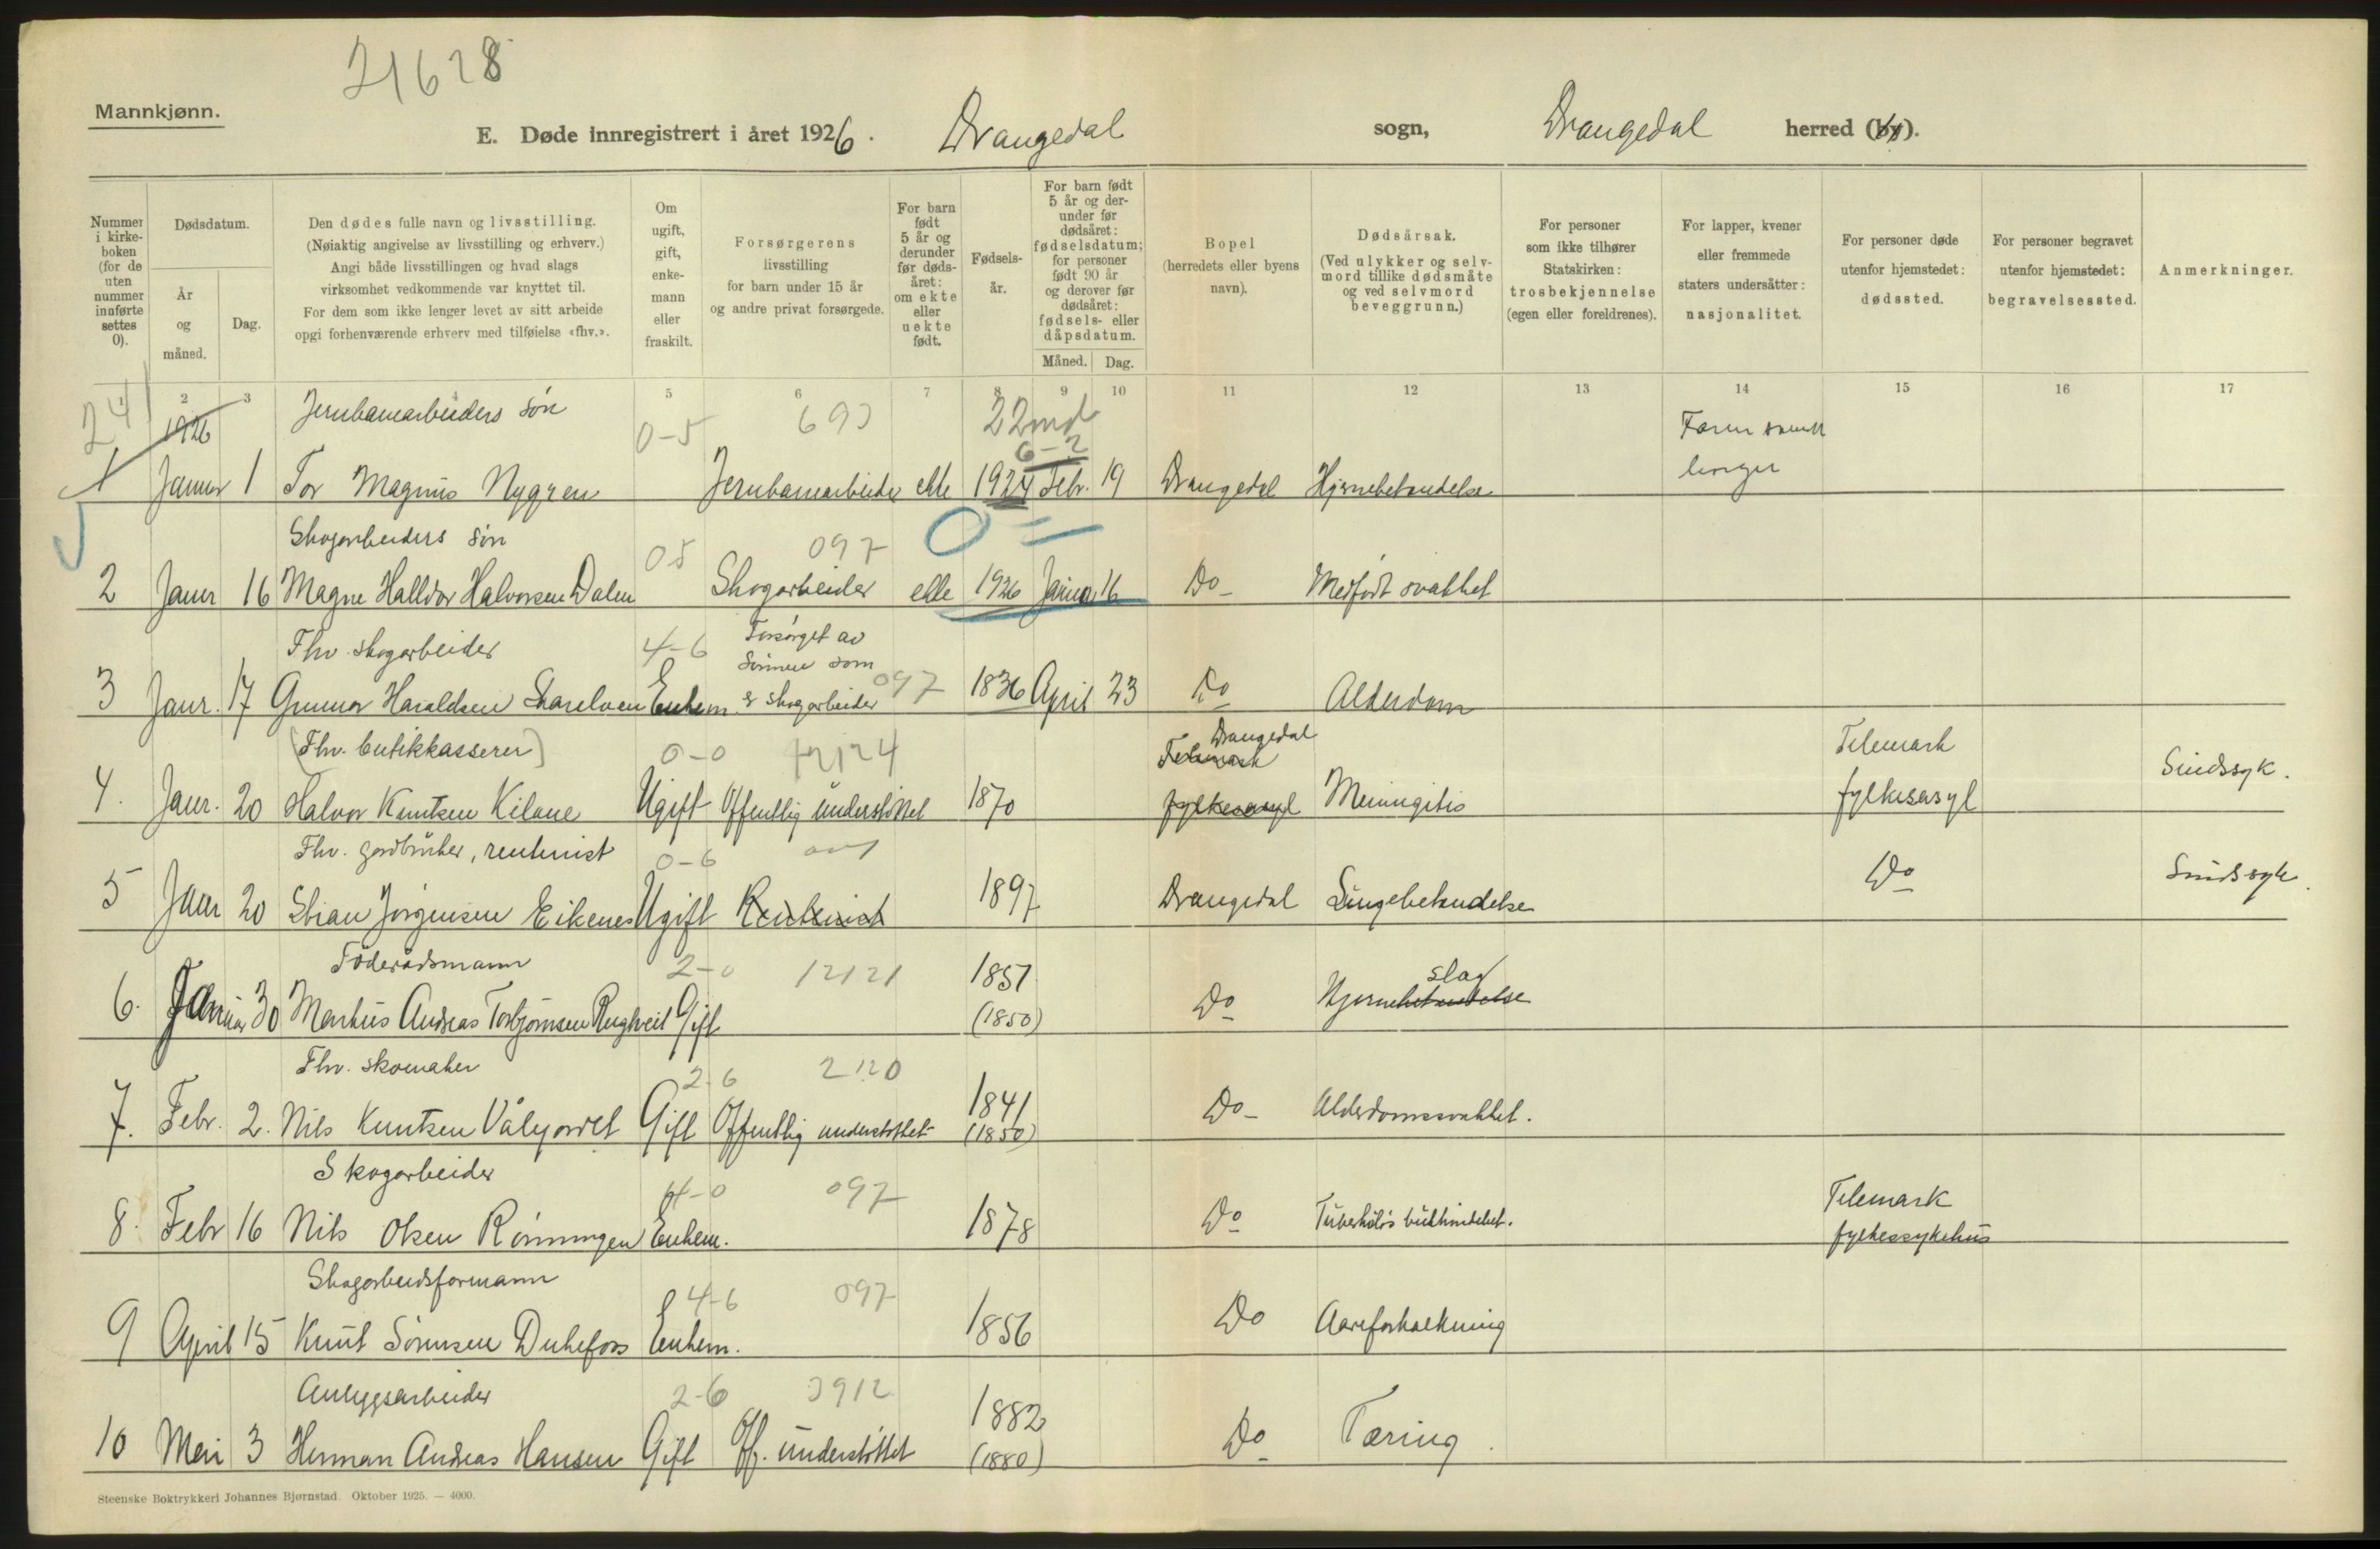 21628
Mannkjønn.
E. Døde innregistrert i året 1926. Drangedal sogn, Drangedal herred (by).
Nummer i kirkeboken (for de uten nummer innførte settes 0).
Dødsdatum.
År og måned.
Dag.
Den dødes fulle navn og livsstilling.
(Nøiaktig angivelse av livsstilling og erhverv.)
Angi både livsstillingen og hvad slags
virksomhet vedkommende var knyttet til.
For dem som ikke lenger levet av sitt arbeide
opgi forhenværende erhverv med tilføielse «fhv.».
Om ugift, gift, enkemann eller fraskilt.
Forsørgerens livsstilling
for barn under 15 år
og andre privat forsørgede.
For barn født 5 år og derunder før dødsåret: om ekte eller uekte født.
Fødselsår.
For barn født 5 år og derunder før dødsåret: fødselsdatum; for personer født 90 år og derover før dødsåret: fødsels- eller dåpsdatum.
Måned. Dag.
Bopel
(herredets eller byens navn).
Dødsårsak.
(Ved ulykker og selvmord tillike dødsmåte og ved selvmord beveggrunn.)
For personer som ikke tilhører Statskirken:
trosbekjennelse
(egen eller foreldrenes).
For lapper, kvener eller fremmede staters undersåtter:
nasjonalitet.
For personer døde utenfor hjemstedet:
dødssted.
For personer begravet utenfor hjemstedet:
begravelsessted.
Anmerkninger.
24
2 3 4 5 6 7 8 9 10 11 12 13 14 15 16 17
1926 Jernbanearbeiders søn 0-5 693 22 md
6-2
1 Januar 1 Tor Magnus Nygren Jernbanearbeider ekte 1924 Febr. 19 Drangedal Hjernebetendelse
Skogarbeiders søn 05 097 0
2 Januar 16 Magne Halldor Halvorsen Dalen Skogarbeider ekte 1926 Januar 16 Do Medfødt svakhet
Fhv. skogarbeider 4-6 Forsørget av
Sønnen som
3 Januar. 17 Gunnar Haraldsen Enkem. e skogarbeider 097 1836 April 23 Do Alderdom
(Fhv. butikkasserer) 0-0 12124 Drangedal
Telemark Telemark
4. Januar. 20 Halvor Knutsen Kilane Ugift Offentlig understøttet 1870 fylkesasyl Meningitis fylkesasyl Sindssyk.
Fhv. gardbruker, rentenist 0-6
5 Januar 20 Stian Jørgensen Eikenes Ugift Rentenist 1897 Drangedal Lungebetendelse Do Sindssyk.
Føderådsmann 2-0 12121 1851 slag
6. Januar 30 Markus Andreas Torbjørnsen Rugtveit Gift (1850) Do Hjernebetendelse
Fhv. skomaker 2-6 2120 1841
7. Febr. 2. Nils Knutsen Gift Offentlig understøttet (1850) Do Alderdomssvakhet.
Skogarbeider 4-0 097
8. Febr 16 Nils Olsen Rønningen Enkem. 1878 Do Tuberkuløs bukhindebet. Telemark
fylkessykehus
Skogarbeidsformann 4-6 097
9 April 15 Knut Sørensen Dukefoss Enkem. 1856 Do Aareforkalkning
Anleggsarbeider 2-6 3912 1882
10 Mai 3 Herman Andreas Hansen Gift Off. understøttet (1880) Do Tæring.
Steenske Boktrykkeri Johannes Bjørnstad. Oktober 1925. — 4000.